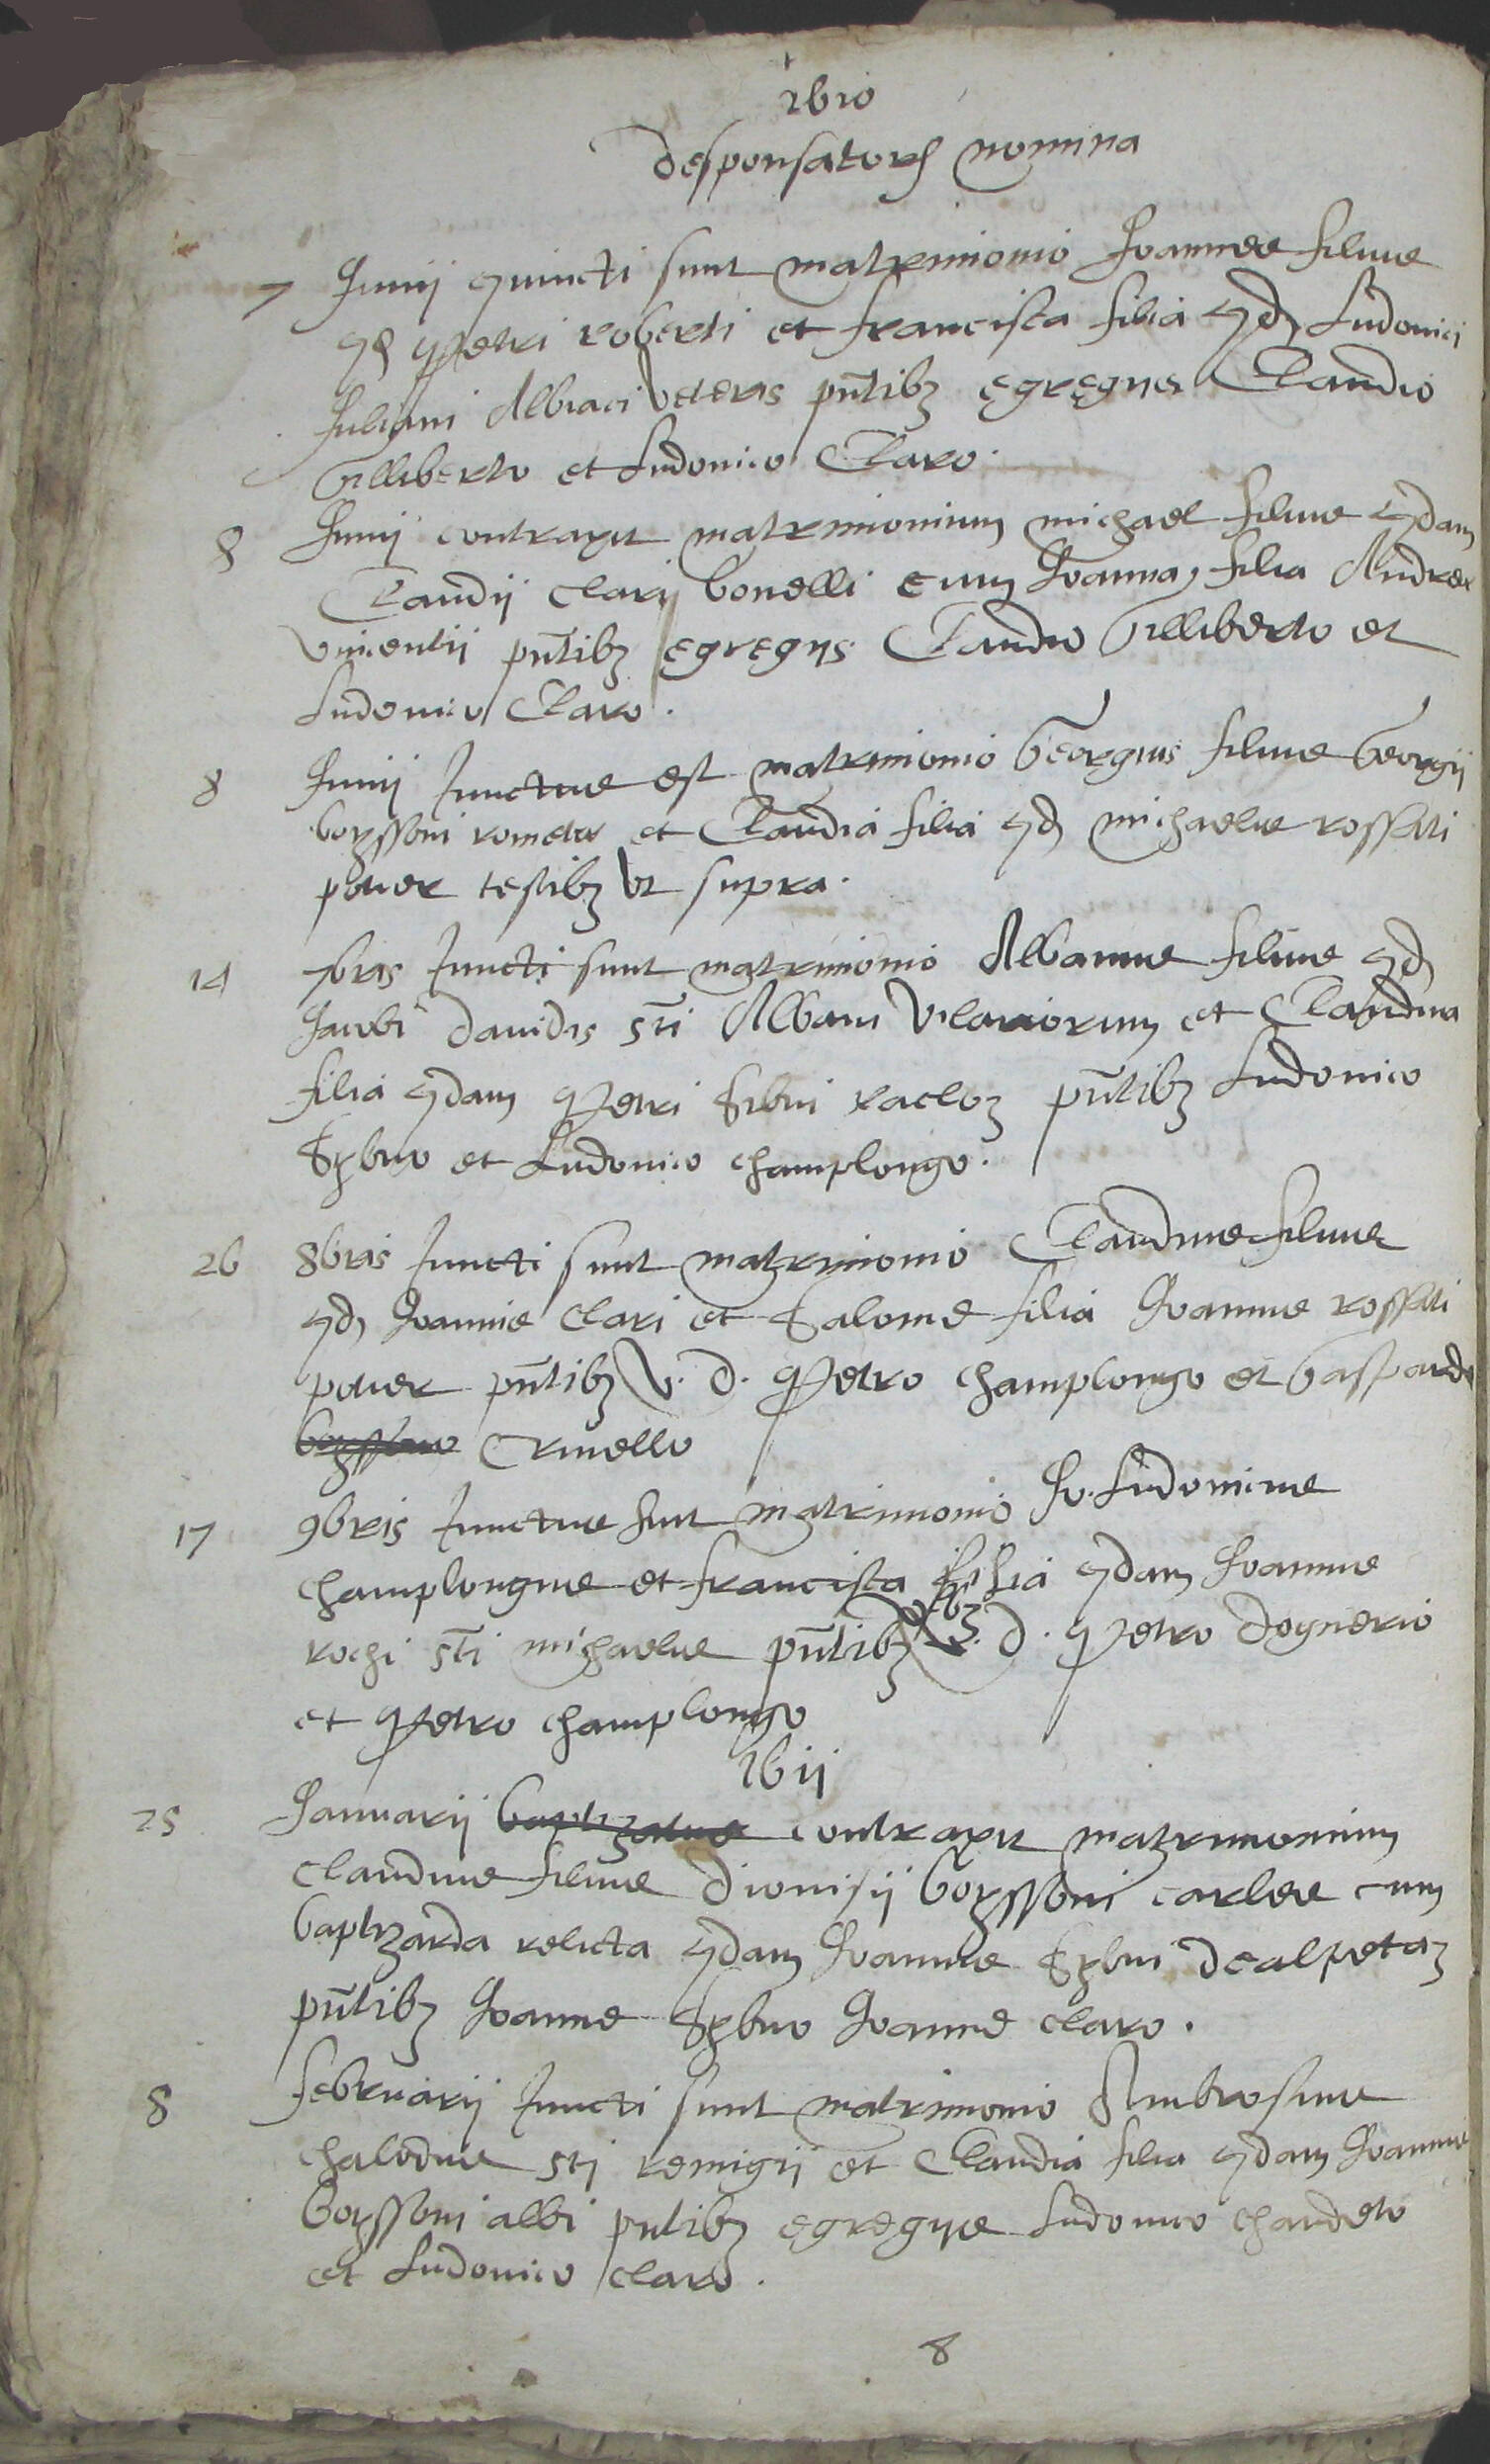 1610
desponsator nomina
7 Junij Conuicti sunt matrimonio Joannes filius
qd Petri roberti et francisca filia qd Ludouici
Juliani Albiaci veteris pntibz egregijs Claudio
Gilliberto et Ludouico Claro.
8 Junij contraxit matrimonium michael filius qdam
Claudij clari bonelli cum Joanna filia Andreæ
vincentii pntibz egregijs Claudio Gilliberto et
Ludouico Claro.
8 Junij Junctus est matrimonio Georgius filius Georgij
boyssoni et Claudia filia qd michaelis rossati
testibz vt supra.
14 7bris Juncti sunt matrimonio Albanus filius qd
Jacobi dauidis sti Albani et Claudina
filia qdam Petri pntibz Ludouico
et Ludouico champlongo.
26 8bris Juncti sunt matrimonio Claudius filius
qd Joannis Clari et Salome filia Joannis rossati
pntibz v. d. Petro champlongo et Gaspardo
Criuello
17 9bris Junctus sunt matrimonio Jo. Ludouicus
champlongus et francisca filia qdam Joannis
rochi sti michaelis pntibz d. Petro dognerio
et Petro champlongo
1611
25 Januarij baptizatus contraxit matrimonium
claudius filius Dionisij boyssoni carles cum
baptizarda relicta qdam Joannis
pntibz Joanne Joanne claro.
8 februarij Juncti sunt matrimonio Ambrosius
chalodus sti remigij et Claudia filia qdam Joannis
boyssoni albi pntibz egregijs Ludouico chardeto
et Ludouico claro.
8